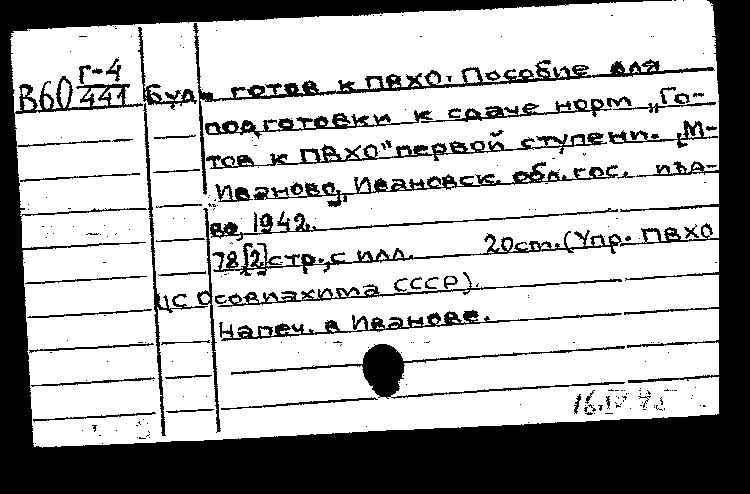 В60 Г-4/441
Будь готов к ПВХО. Пособие для
подготовки к сдаче норм „Го-
тов к ПВХО" первой ступени. [М-
Иваново], Ивановск. обл. гос. изд-
во, 1942.
78[2]стр., с илл. 20см. (Упр. ПВХО
ЦС Осовиахима СССР).
Напеч. в Иванове.
16.IV 45